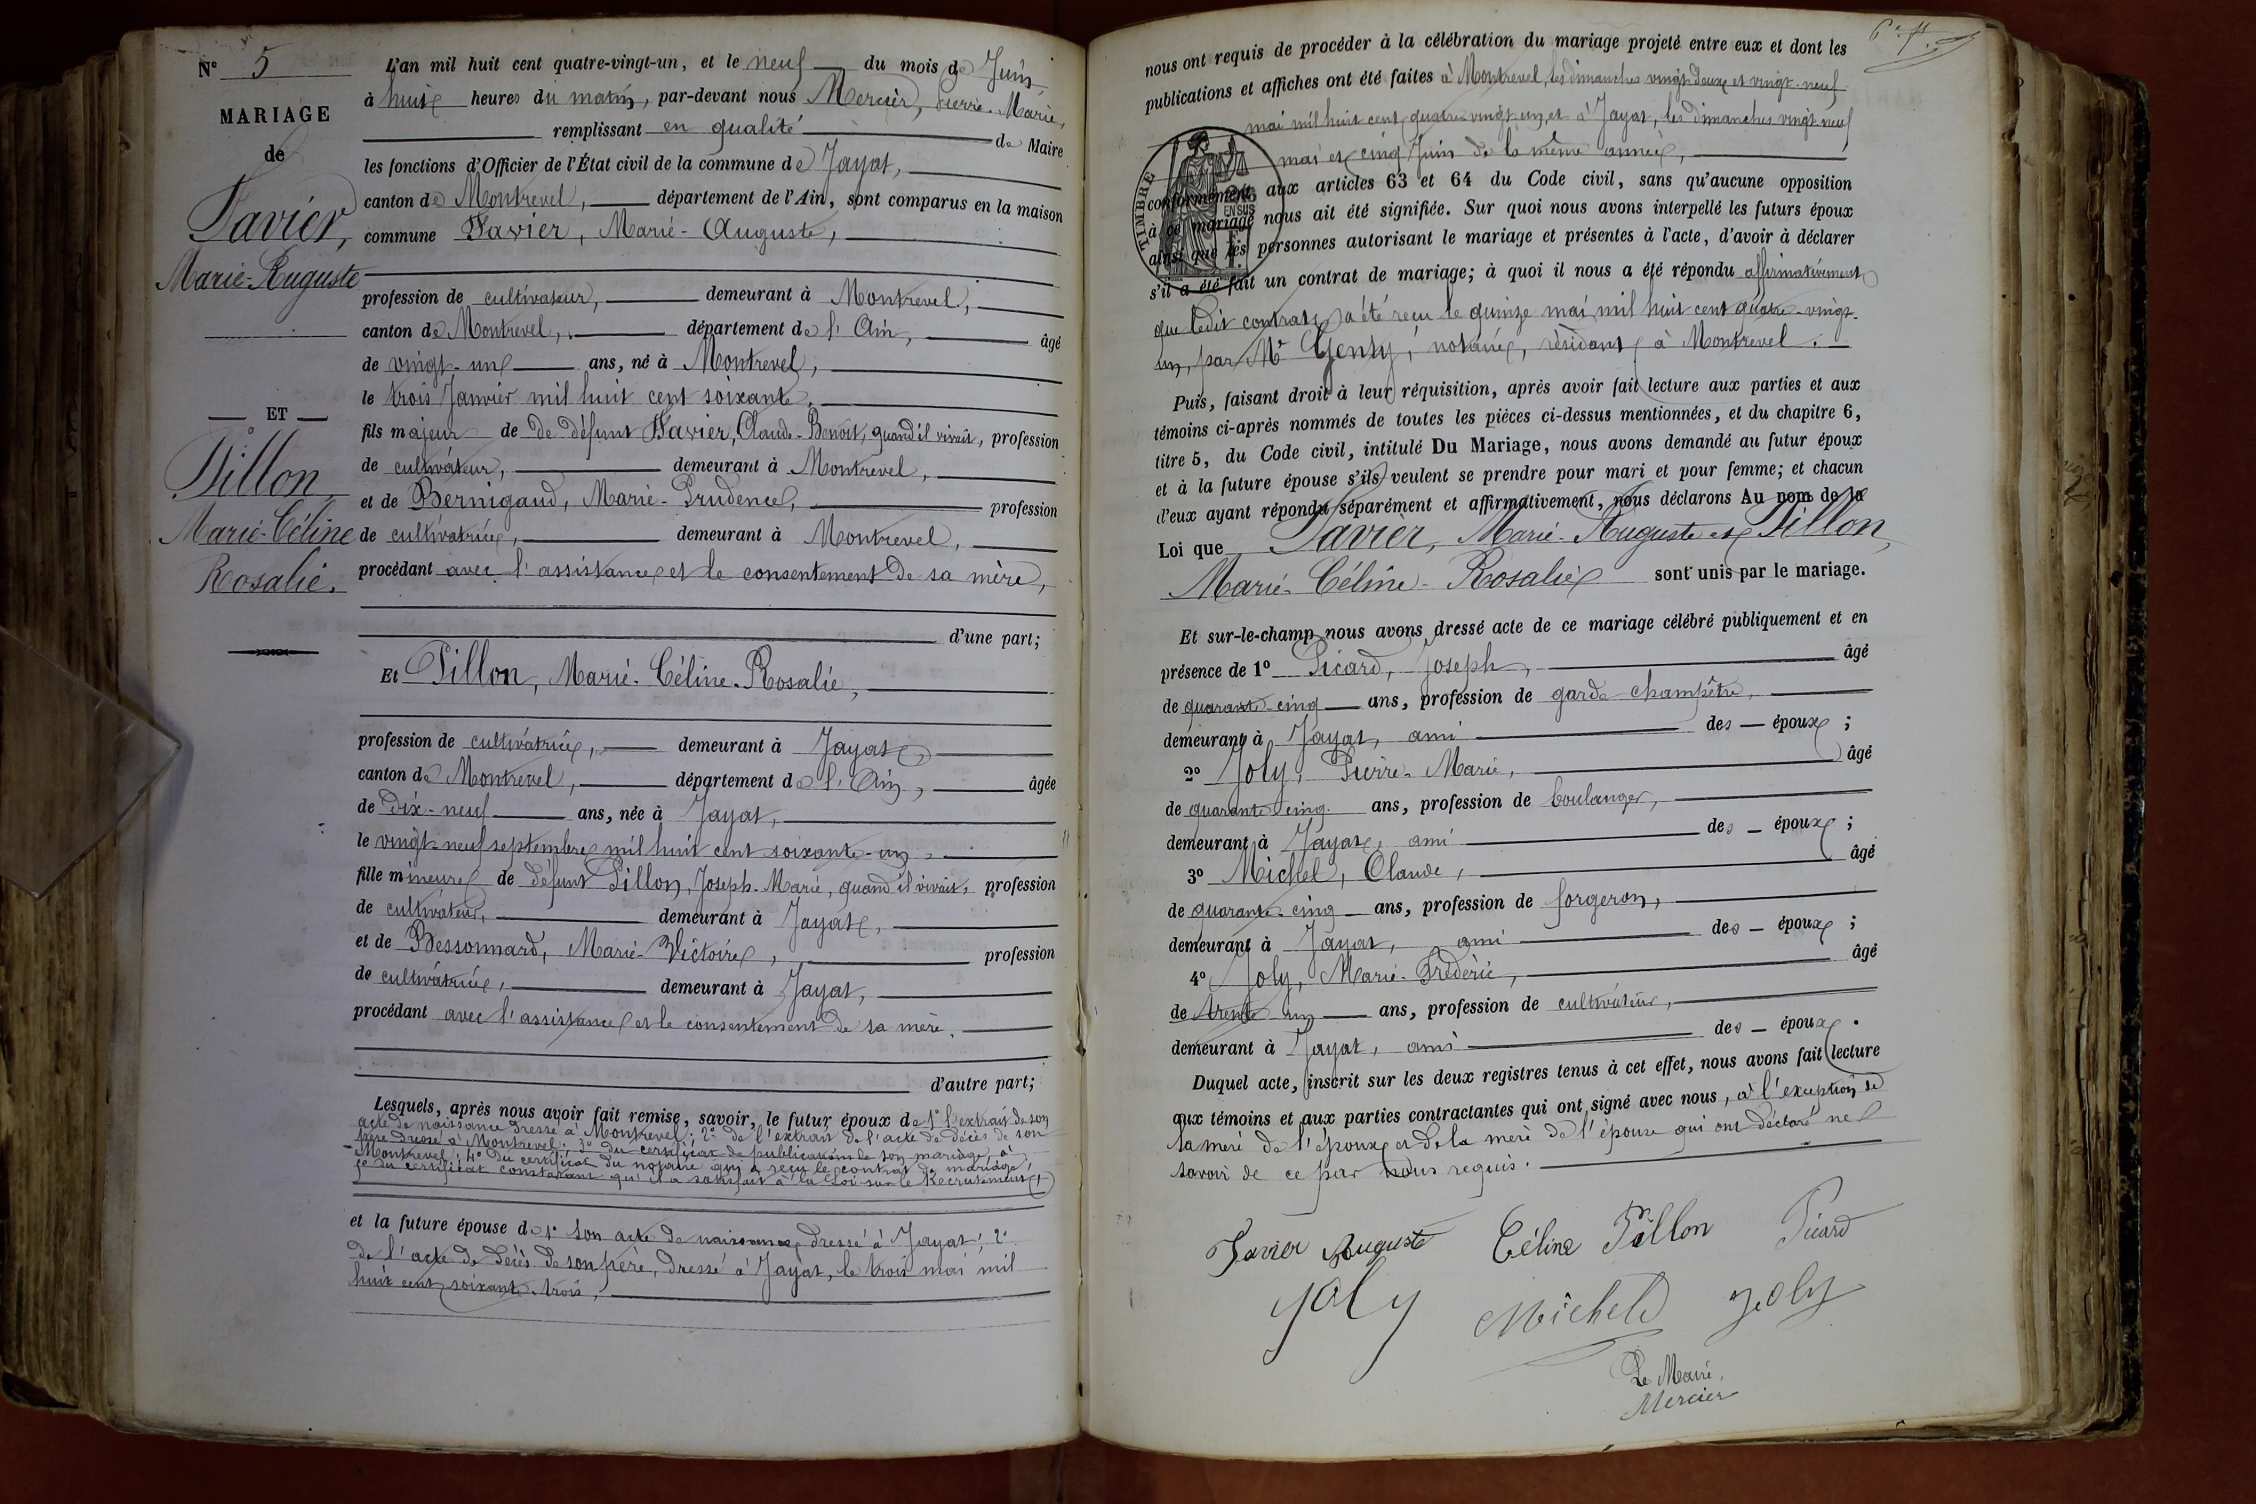 N° 5
MARIAGE
de
Favier,
Marie-Auguste
ET
Pillon
Marie-Céline
Rosalie.
L'an mil huit cent quatre-vingt-un, et le neuf du mois de Juin,
à huit heures du matin, par-devant nous Mercier, Pierre-Marie,
remplissant en qualité de Maire
les fonctions d'Officier de l'État civil de la commune de Jayat,
canton de Montrevel, département de l'Ain, sont comparus en la maison
commune Favier, Marie-Auguste,
profession de cultivateur, demeurant à Montrevel,
canton de Montrevel, département de l'Ain, âgé
de vingt-un ans, né à Montrevel,
le trois Janvier mil huit cent soixante,
fils majeur de de défunt Favier, Claude-Benoit, quand il vivait, profession
de cultivateur, demeurant à Montrevel,
et de Bernigaud, Marie-Prudence, profession
de cultivatrice, demeurant à Montrevel,
procédant avec l'assistance et le consentement de sa mère,
d'une part;
Et Pillon, Marie-Céline-Rosalie,
profession de cultivatrice, demeurant à Jayat,
canton de Montrevel, département de l'Ain, âgée
de dix-neuf ans, née à Jayat,
le vingt-neuf septembre mil huit cent soixante-un,
fille mineure de défunt Pillon, Joseph-Marie, quand il vivait, profession
de cultivateur, demeurant à Jayat,
et de Bessonnard, Marie-Victoire, profession
de cultivatrice, demeurant à Jayat,
procédant avec l'assistance et le consentement de sa mère.
d'autre part;
Lesquels, après nous avoir fait remise, savoir, le futur époux de 1° l'extrait de son
acte de naissance dressé à Montrevel; 2° de l'extrait de l'acte de décès de son
père dressé à Montrevel; 3° du certificat de publications de son mariage, à
Montrevel; 4° du certificat du notaire qui a reçu le contrat de mariage;
5° du certificat constatant qu'il a satisfait à la Loi sur le Recrutement,
et la future épouse de 1° son acte de naissance, dressé à Jayat; 2°
de l'acte de décès de son père, dressé à Jayat, le trois mai mil
huit cent soixante-trois,
nous ont requis de procéder à la célébration du mariage projeté entre eux et dont les
publications et affiches ont été faites à Montrevel, les dimanches vingt-deux et vingt-neuf
mai mil huit cent quatre-vingt-un, et à Jayat, les dimanches vingt-neuf
mai et cinq Juin de la même année,
TIMBRE
EN SUS
conformément aux articles 63 et 64 du Code civil, sans qu'aucune opposition
à ce mariage nous ait été signifiée. Sur quoi nous avons interpellé les futurs époux
ainsi que les personnes autorisant le mariage et présentes à l'acte, d'avoir à déclarer
s'il a été fait un contrat de mariage; à quoi il nous a été répondu affirmativement
que ledit contrat a été reçu le quinze mai mil huit cent quatre-vingt-
un, par Me Genty, notaire, résidant à Montrevel.
Puis, faisant droit à leur réquisition, après avoir fait lecture aux parties et aux
témoins ci-après nommés de toutes les pièces ci-dessus mentionnées, et du chapitre 6,
titre 5, du Code civil, intitulé Du Mariage, nous avons demandé au futur époux
et à la future épouse s'ils veulent se prendre pour mari et pour femme; et chacun
d'eux ayant répondu séparément et affirmativement, nous déclarons Au nom de la
Loi que Favier, Marie-Auguste et Pillon,
Marie-Céline-Rosalie sont unis par le mariage.
Et sur-le-champ nous avons dressé acte de ce mariage célébré publiquement et en
présence de 1° Picard, Joseph, âgé
de quarante-cinq ans, profession de garde champêtre,
demeurant à Jayat, ami des époux;
2° Joly, Pierre-Marie, âgé
de quarante-cinq ans, profession de boulanger,
demeurant à Jayat, ami des époux;
3° Michel, Claude, âgé
de quarante-cinq ans, profession de forgeron,
demeurant à Jayat, ami des époux;
4° Joly, Marie-Frédéric, âgé
de trente-un ans, profession de cultivateur,
demeurant à Jayat, ami des époux.
Duquel acte, inscrit sur les deux registres tenus à cet effet, nous avons fait lecture
aux témoins et aux parties contractantes qui ont signé avec nous, à l'exception de
la mère de l'époux et de la mère de l'épouse qui ont déclaré ne
savoir de ce par nous requis.
Favier Auguste Céline Pillon Picard
Joly Michel Joly
Le Maire,
Mercier